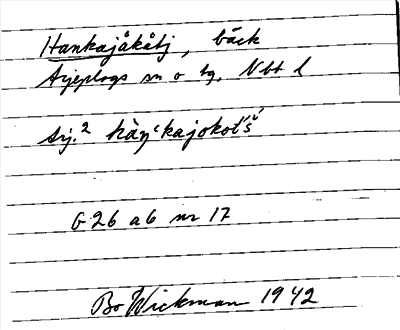 Hankajåkåtj, bäck
Arjeplogs sn o tg, Nbt l
Arj.² hàŋ‘kajokot́š́
G 26 a 6 nr 17
Bo Wickman 1942